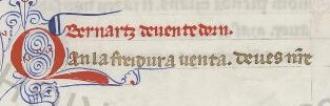 Bernartz deuentedorn.
Qan la freidura uenta. deues nr̄e